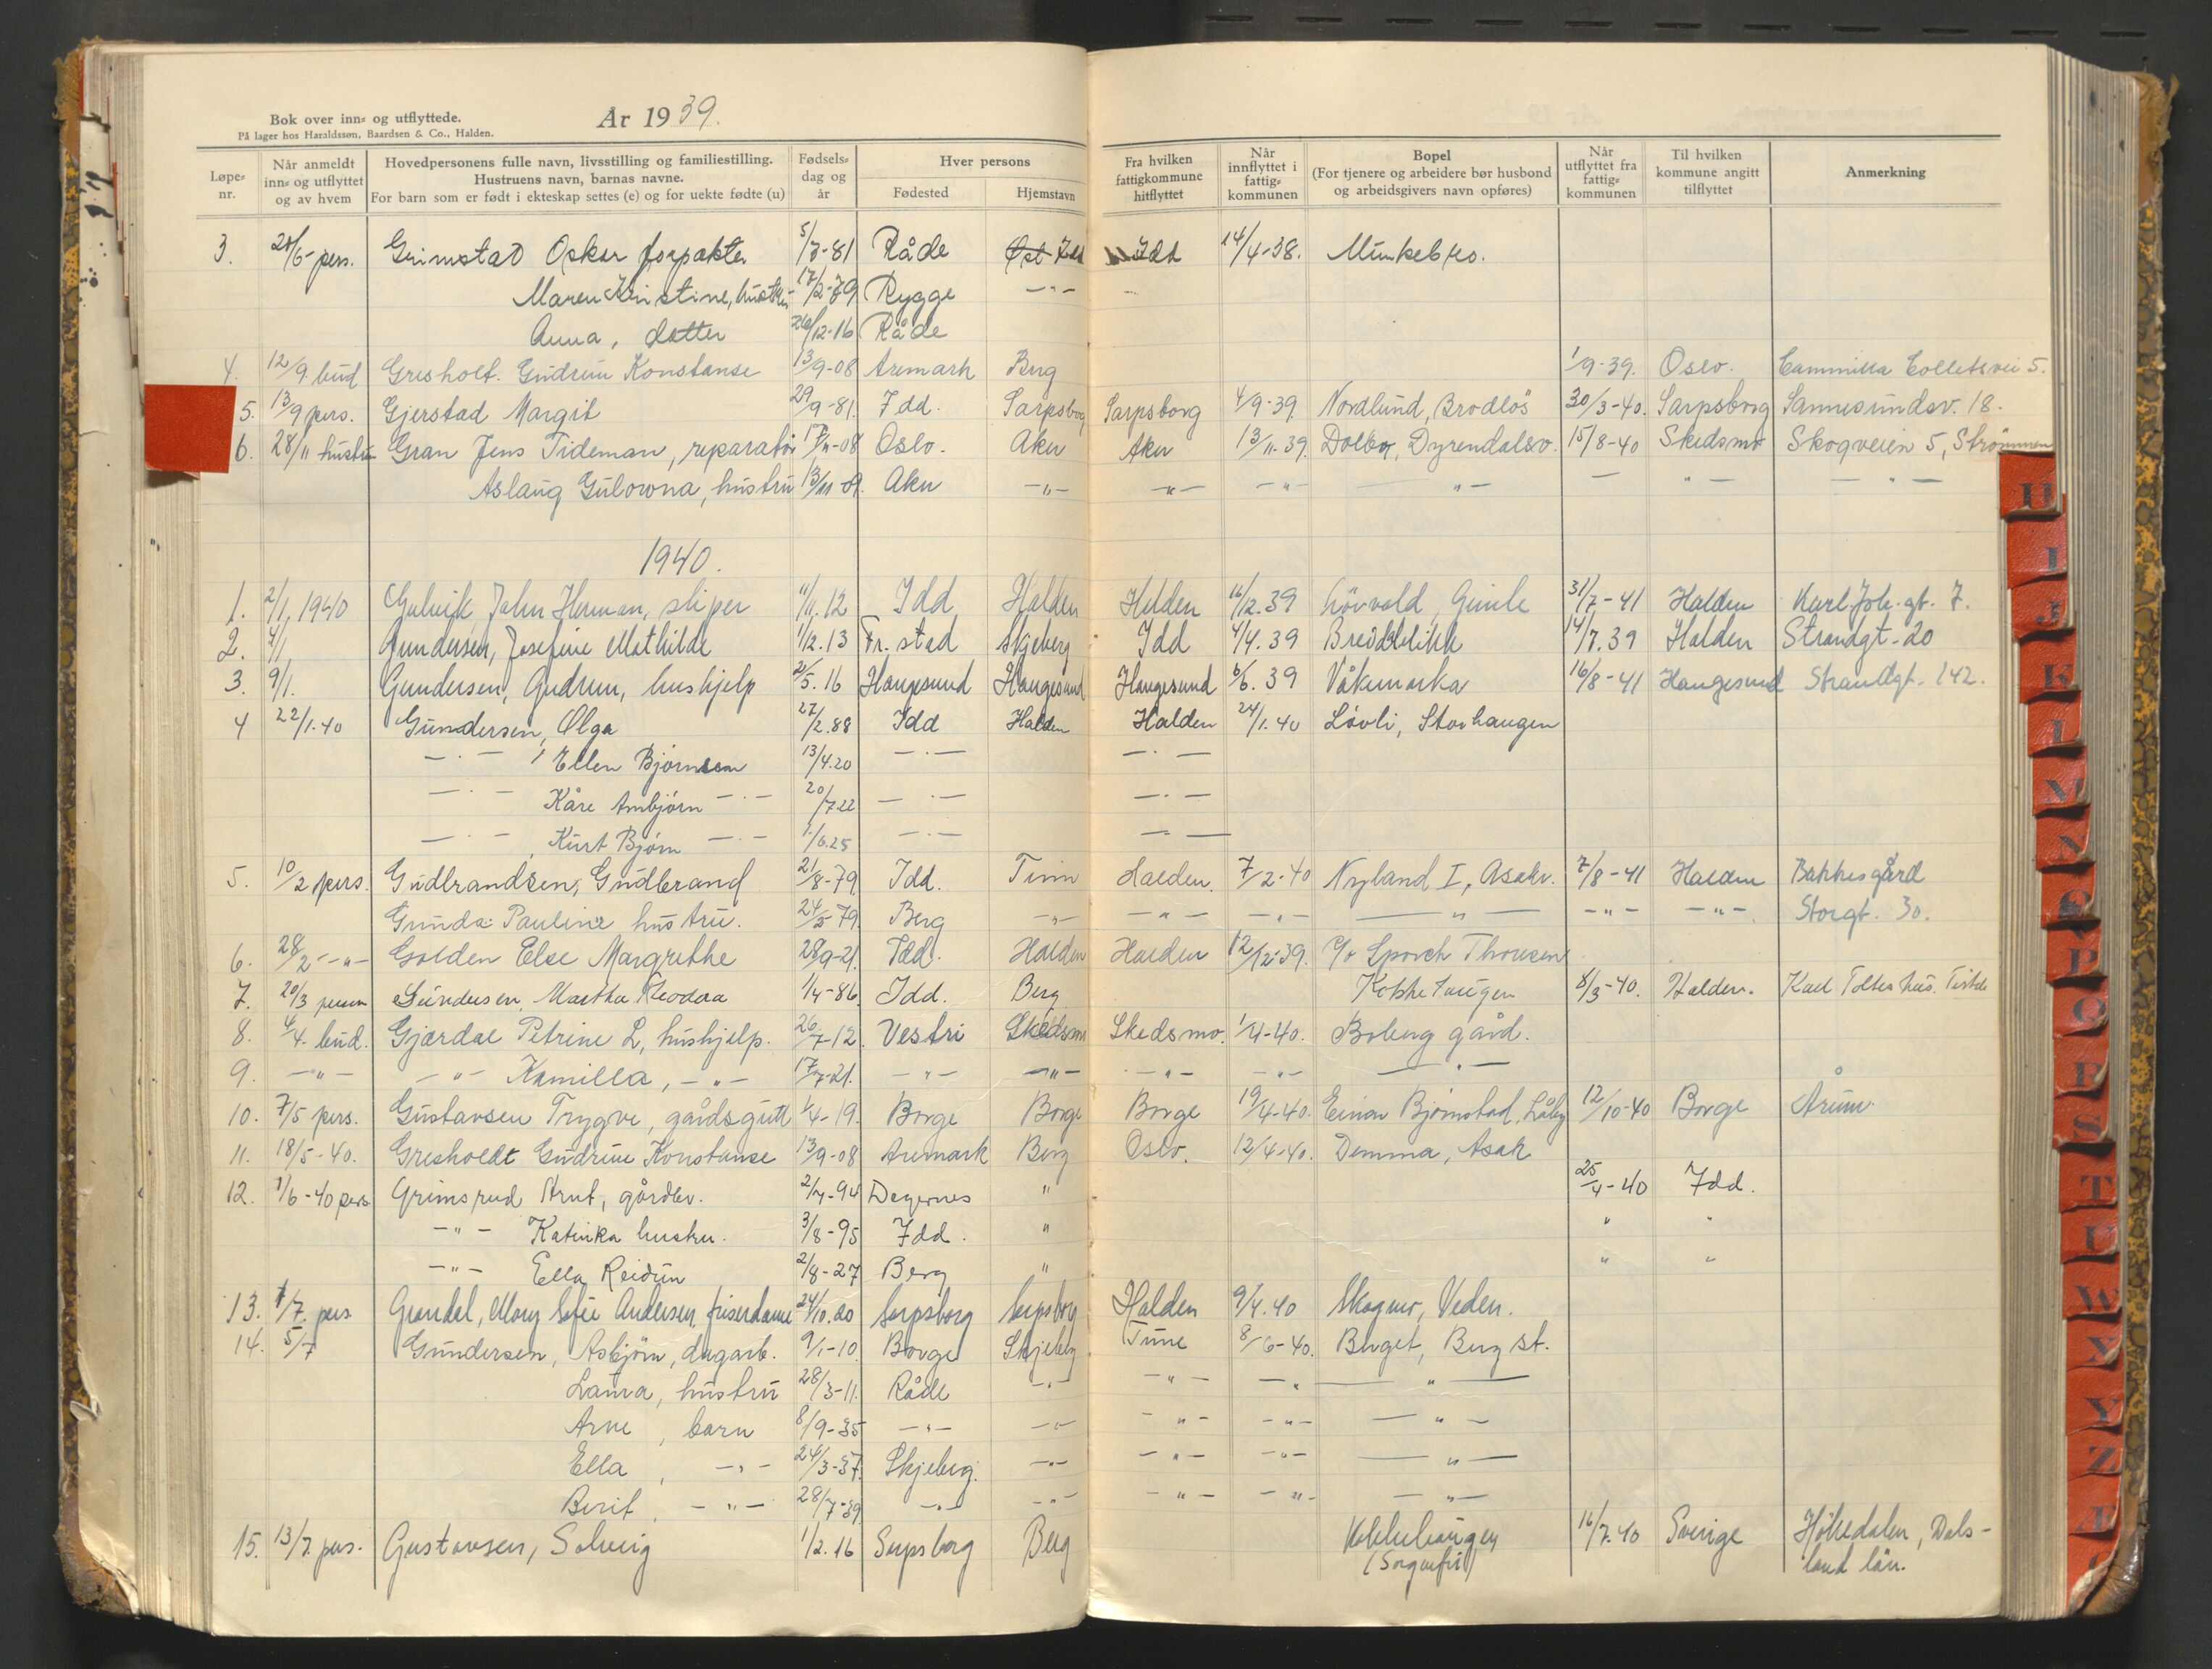 Bok over inn- og utflyttede.
På lager hos Haraldssøn, Baardsen & Co., Halden.
År 1939.
Løpe-nr. Når anmeldt inn- og utflyttet og av hvem Hovedpersonens fulle navn, livsstilling og familiestilling. Hustruens navn, barnas navne. For barn som er født i ekteskap settes (e) og for uekte fødte (u) Fødsels-dag og år Hver persons Fødested Hjemstavn Fra hvilken fattigkommune hitflyttet Når innflyttet i fattig-kommunen Bopel (For tjenere og arbeidere bør husbond og arbeidsgivers navn opføres) Når utflyttet fra fattig-kommunen Til hvilken kommune angitt tilflyttet Anmerkning
3. 28/6 pers. Grimstad Oskar forpakter 5/7-81 Råde Øst Idd Idd 14/4-38. Munkebro.
Maren Kristine, hustru 17/2-79 Rygge -"-
Anna, datter 26/12-16 Råde
4. 12/9 bud Gresholt. Gudrun Konstanse 13/9-08 Aremark Berg 1/9-39. Oslo. Cammilla Colletsvei 5.
5. 13/9 pers. Gjerstad Margit 29/9-81. Idd. Sarpsborg Sarpsborg 4/9-39 Nordlund, Brødløs 30/3-40. Sarpsborg Sannesundsv. 18.
6. 28/11 hustru Gran Jens Tideman, reparatør 17/11-08 Oslo. Aker Aker 13/11-39. Dolbo, Dyrendalsv. 15/8-40 Skedsmo Skogveien 5, Strømmen
Aslaug Gulowna, hustru 13/11-09. Aker -"- -"- -"- -"- - "- - " -
1940.
1. 2/1 1940 Gulvik John Herman, sliper 11/11.12 Idd Halden Halden 16/12.39 Løvvold, Gimle 31/7-41 Halden Karl Joh. gt. 7.
2. 4/1 Gundersen, Josefine Mathilde 1/2.13 Fr.stad Skjeberg Idd 4/4.39 Breidablikk 14/7.39 Halden Strandgt. 20
3. 9/1. Gundersen, Gudrun, hushjelp 2/5.16 Haugesund Haugesund Haugesund 6/6.39 Våkumarka 16/8-41 Haugesund Strandgt. 142.
4 22/1.40 Gundersen, Olga 27/2.88 Idd Halden Halden 24/1.40 Løvli, Storhaugen
- " - , Ellen Bjørnsen 13/4.20 - " - - " -
- " - Kåre Ambjørn - " - 20/7.22 - " - - " -
- " - , Kurt Bjørn - " - 1/6.25 - " - - " -
5. 10/2 pers. Gudbrandsen, Gudbrand 21/8-79 Idd. Tinn Halden. 7/2-40 Nyland I, Asakv. 7/8-41 Halden Bakkesgård
Gunda Pauline hustru. 24/5 79. Berg -"- -"- -"- -"- -"- -"- Storgt. 30.
6. 28/2 -"- Golden Else Margrethe 28/9-21. Idd. Halden Halden 12/12-39. c/o Sporch Thoresen
7. 20/3 person Gundersen, Martha Teodora 1/4-86 Idd. Berg Kokhehaugen 8/3-40. Halden.
8. 4/4. bud. Gjærdal Petrine L, hushjelp. 26/7-12. Vestri Skedsmo Skedsmo. 1/4-40. Boberg gård.
9. -"- -"- Kamilla, -"- 17/7-21. -"- -"- -"- -"- -"-
10. 7/5 pers. Gustavsen Trygve, gårdsgutt 1/4-19. Borge Borge Borge 19/4-40. Einar Bjørnstad, Låby 12/10-40 Borge Årum.
11. 18/5-40. Gresholdt Gudrun Konstanse 13/9-08 Aremark Berg Oslo. 12/4-40. Demma, Asak
12. 1/6-40 pers. Grimsrud Arnt, gårdbr. 2/4-94 Degernes " 25/4-40 Idd.
-"- Katinka hustru. 3/8-95 Idd. " " "
-"- Ella Reidun 2/8-27 Berg " " "
13. 1/7. pers Grøndal, Mary Sofie Andersen, friserdame 24/10.20 Sarpsborg Sarpsborg Halden 9/4.40 Skogmo, Veden.
14. 5/7 Gundersen, Asbjørn, dagarb. 9/1-10. Borge Skjeberg Tune 8/6-40. Berget, Berg st.
Laura, hustru 28/3-11. Råde -"- -"- -"- -"-
Arne, barn 8/9-35 -"- -"- -"- -"- -"-
Ella, -"- 24/3-37. Skjeberg. -"- -"- -"- -"-
Berit, -"- 28/7-39 -"- -"- -"- -"- -"-
15. 13/7. pers. Gustavsen, Solveig 1/2.16 Sarpsborg Berg Kokkehaugen 16/7.40 Sverige Høkedalen, Dals-
(Sorgenfri) land län.
H
I
J
K
L
M
N
O
P
Q
R
S
T
U
W
X
Y
Z
Æ